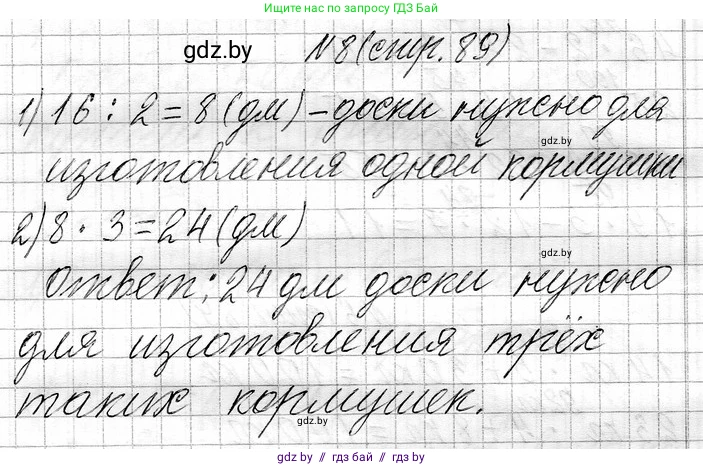 Присоединяйтесь к нам по запросу ГДЗ Бай
gdz.by
№8 (стр. 89)
1) 16 : 2 = 8 (дм) – доски нужно для
gdz.by
изготовления одной кормушки
2) 8 · 3 = 24 (дм)
gdz.by
Ответ: 24 дм доски нужно
для изготовления трёх
таких кормушек.
gdz.by
gdz.by // гдз бай // gdz.by